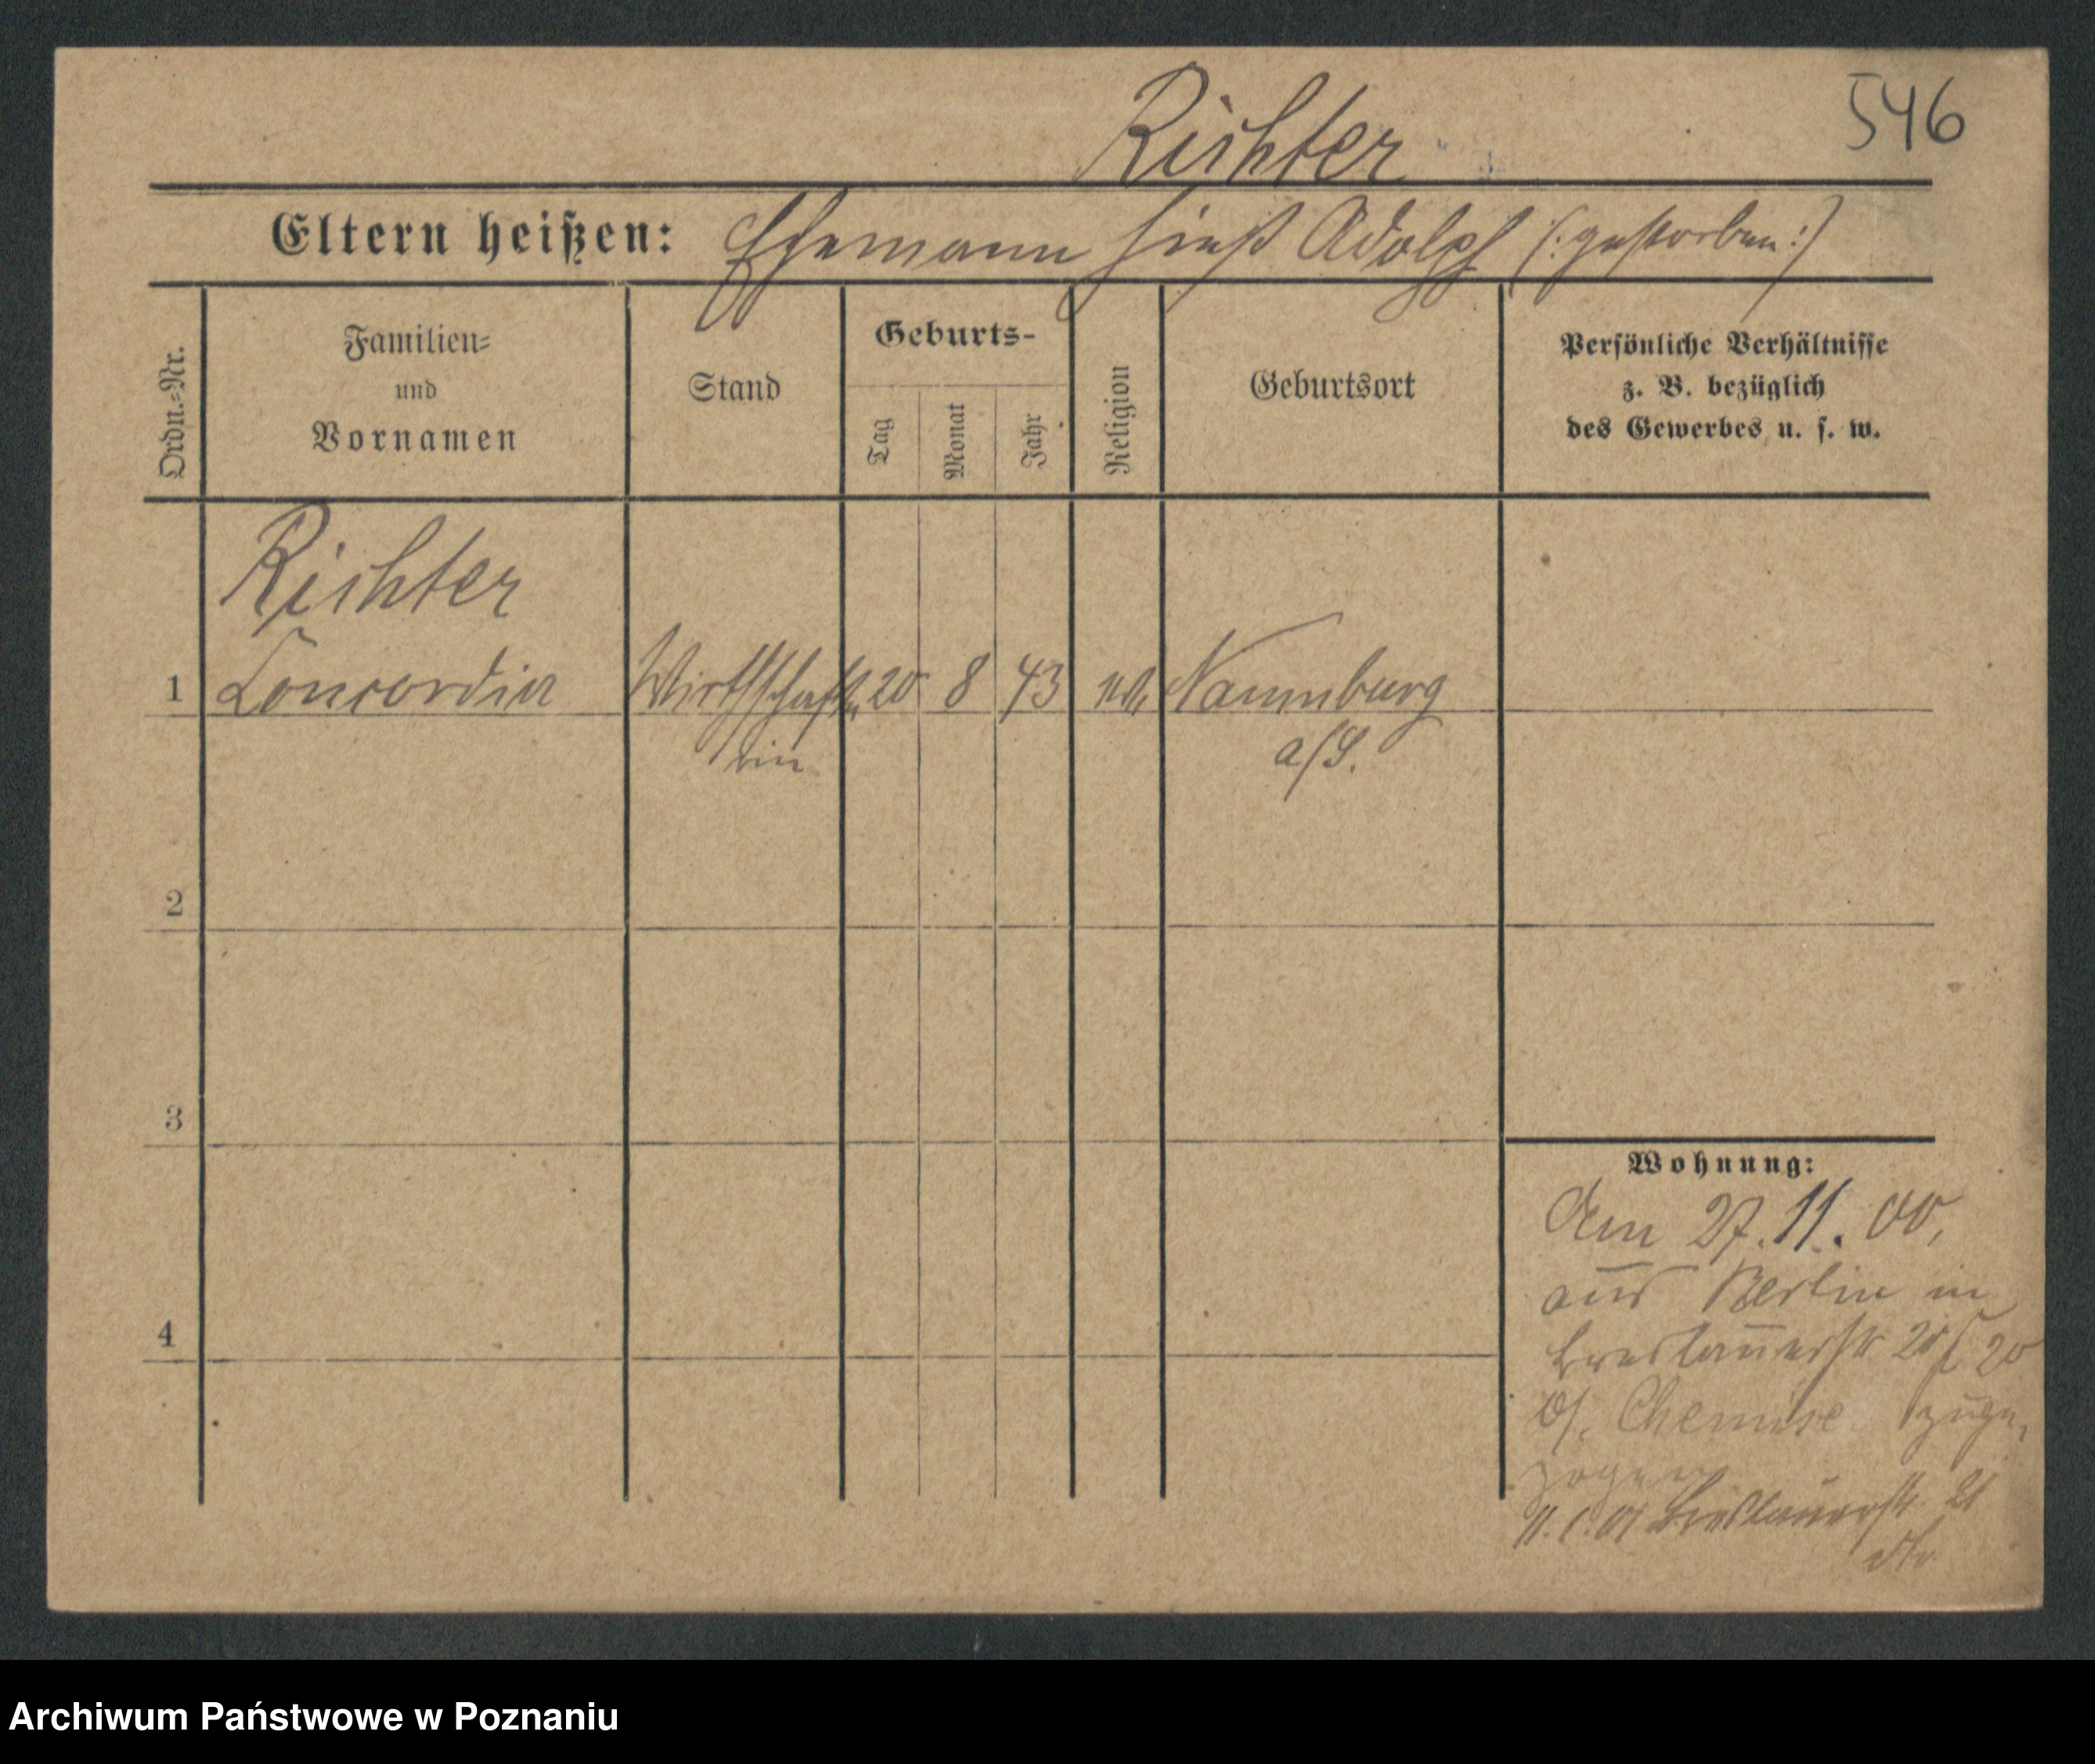 Richter
546
Eltern heißen: Ehemann hieß Adolph (: gestorben :)
Ordn.-Nr.
Familien-
und
Vornamen
Stand
Geburts-
Tag
Monat
Jahr
Religion
Geburtsort
Persönliche Verhältnisse
z. B. bezüglich
des Gewerbes u. s. w.
Richter
1 Concordia Wirthschaft 20 8 43 ev. Naumburg
rin a/S.
2
3
4
Wohnung:
Am 27. 11. 00,
aus Berlin in
Breslauerstr 20
b/. zuge-
zogen
11. 1. 01 Breslauerstr 21
Archiwum Państwowe w Poznaniu